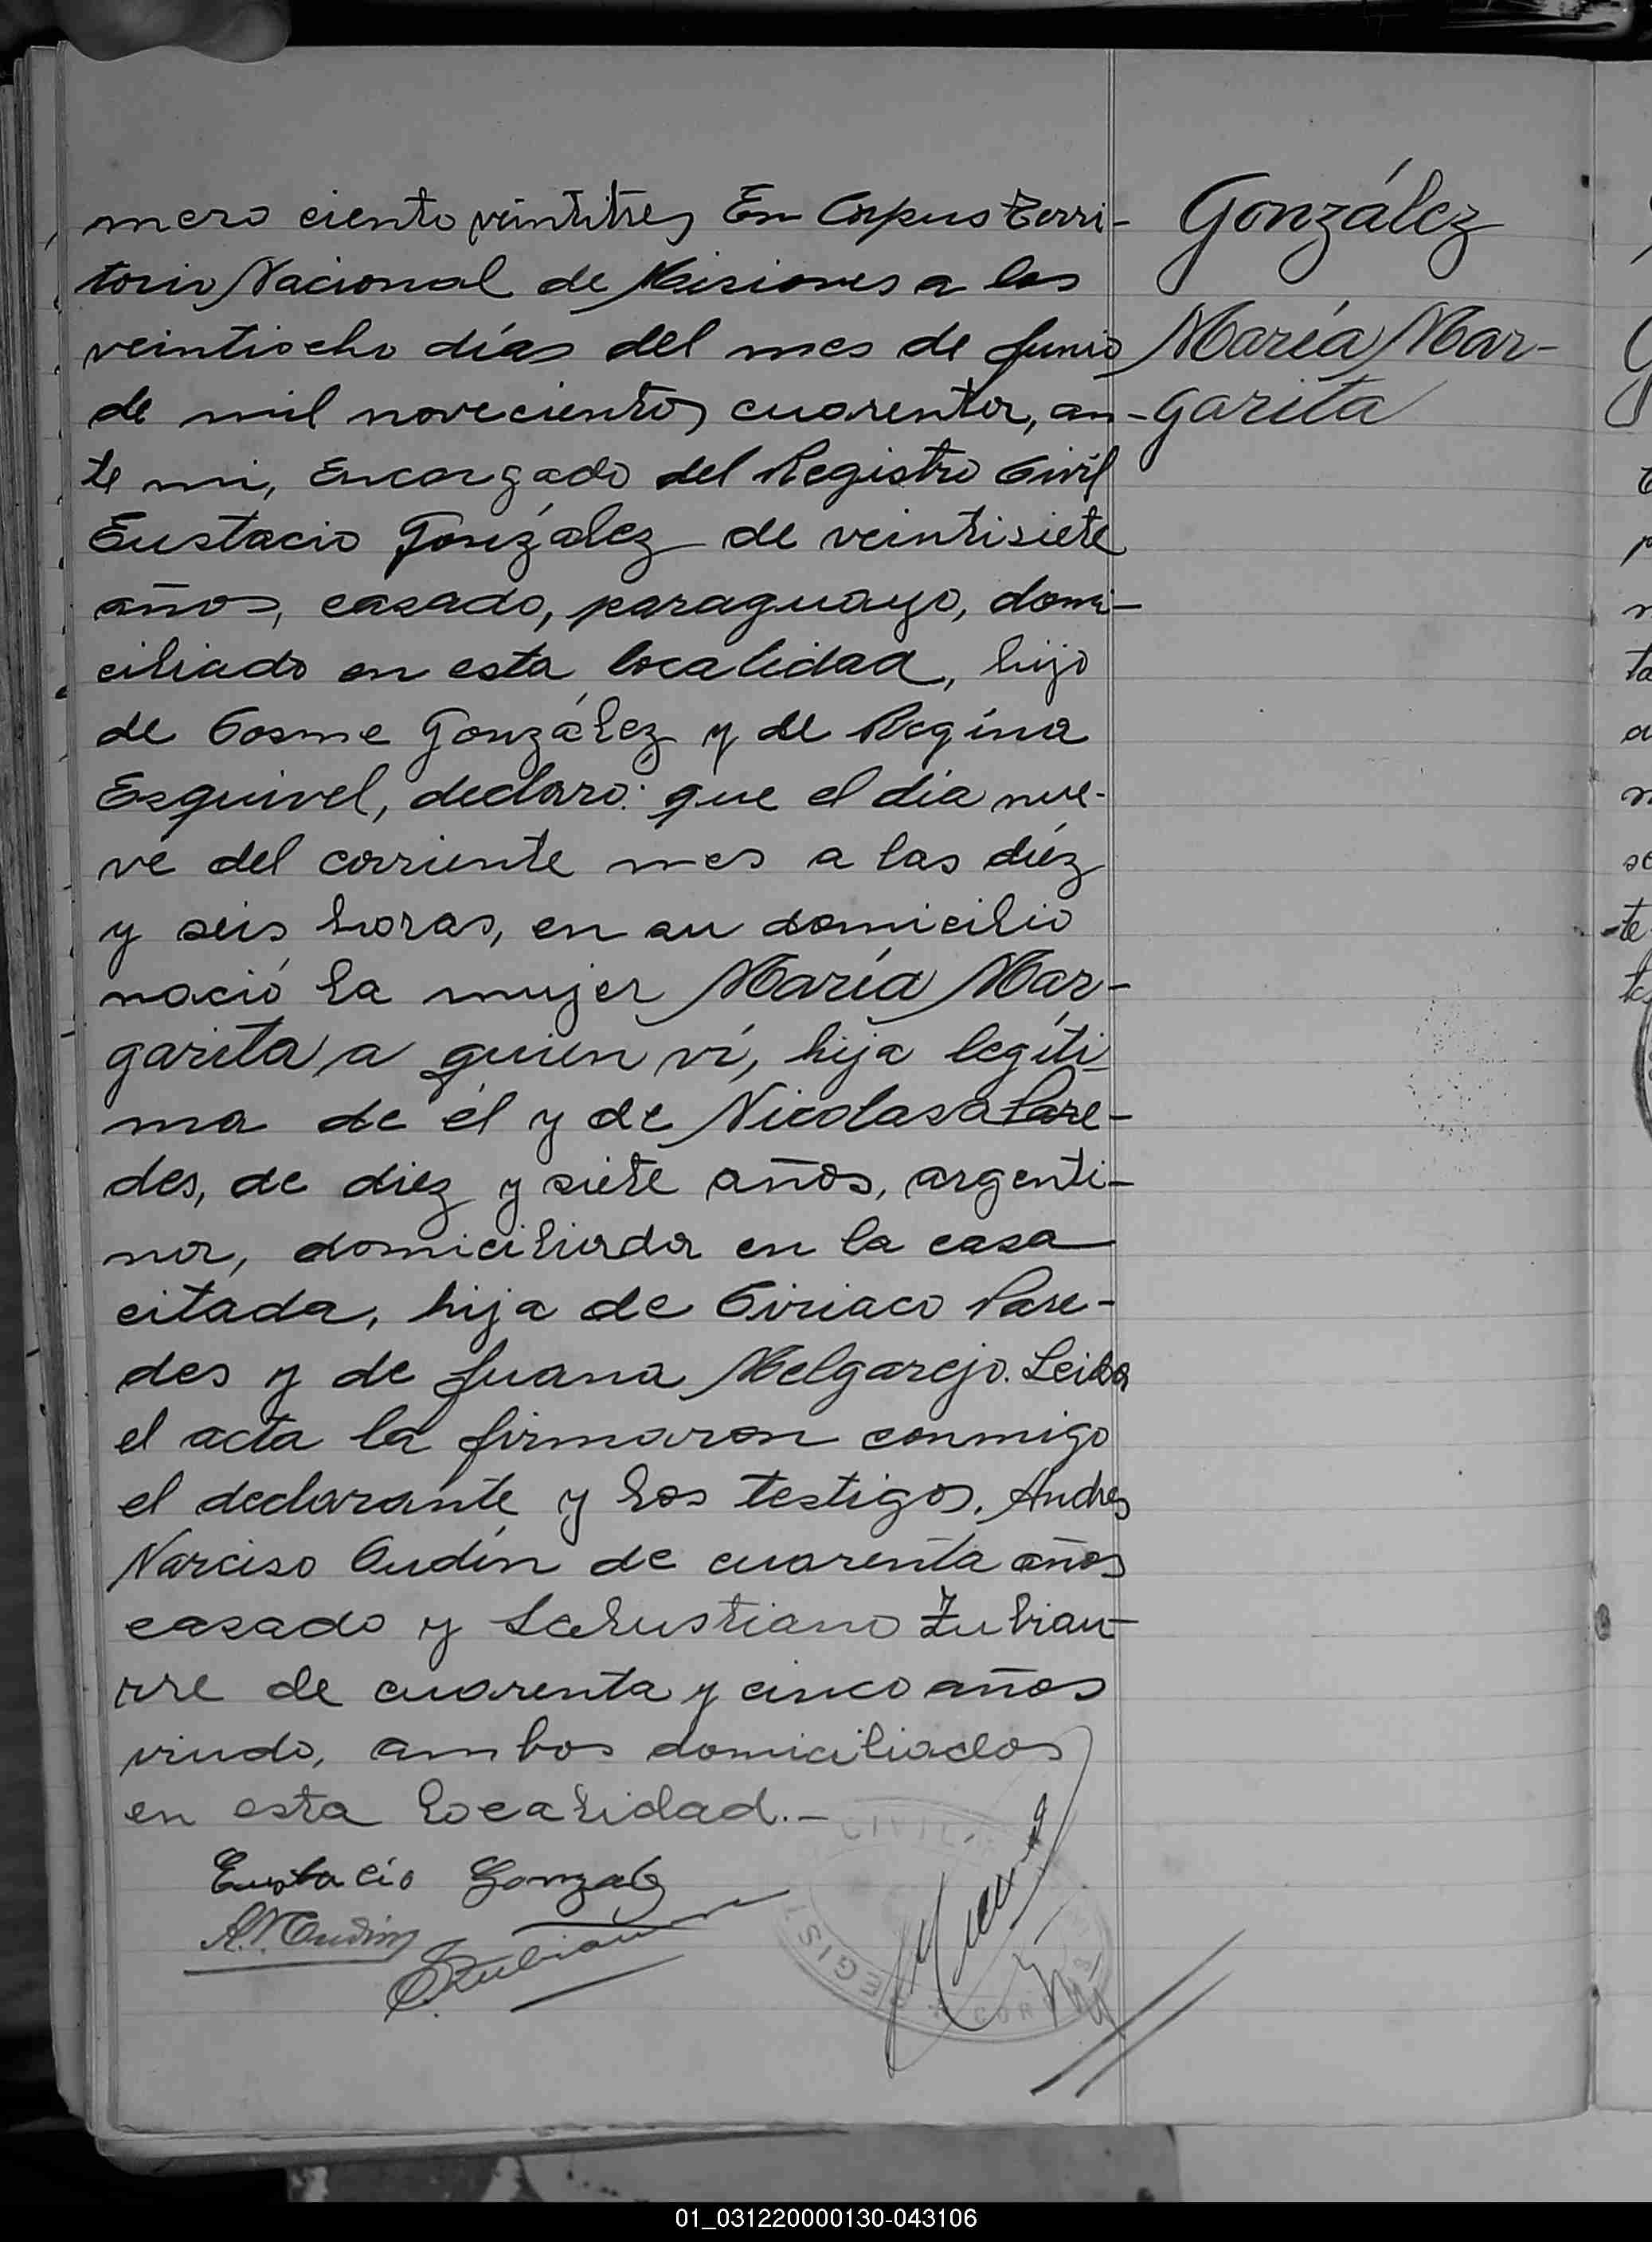 mero ciento veintitres En Corpus Terri-
torio Nacional de Misiones a los
veintiocho días del mes de Junio
de mil novecientos cuarenta, an-
te mi, Encargado del Registro Civil
Eustacio González de veintisiete
años, casado, paraguayo, domi-
ciliado en esta localidad, hijo
de Cosme González y de Regina
Esquivel, declaro: que el día nue-
ve del corriente mes a las diéz
y seis horas, en su domicilio
nació la mujer María Mar-
garita a quien ví, hija legíti
ma de él y de Nicolasa Pare-
des, de diez y siete años, argenti-
na, domiciliada en la casa
citada, hija de Ciriaco Pare-
des y de Juana Melgarejo. Leida
el acta la firmaron conmigo
el declarante y los testigos, Andres
Narciso Oudín de cuarenta años
casado y Salustiano Zubiau-
rre de cuarenta y cinco años
viudo, ambos domiciliados
en esta localidad.-
Eustacio Gonzalez
A.N. Oudin
S. Zubiaur
CIVIL
REGIST
González
María Mar-
garita
01_031220000130-043106